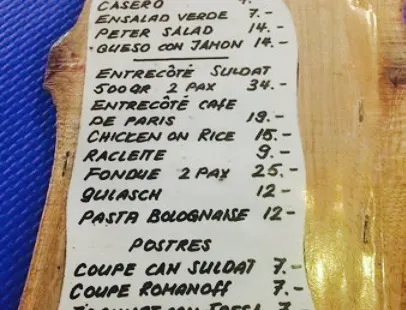 CASERO
ENSALAD VERDE 7.-
PETER SALAD 14.-
QUESO CON JAMON 14.-
ENTRECÔTE SULDAT
500GR 2 PAX 34.-
ENTRECÔTE CAFE
DE PARIS 19.-
CHICKEN ON RICE 15.-
RACLETTE 9.-
FONDUE 2 PAX 25.-
GULASCH 12-
PASTA BOLOGNAISE 12-
POSTRES
COUPE CAN SULDAT 7.-
COUPE ROMANOFF 7.-